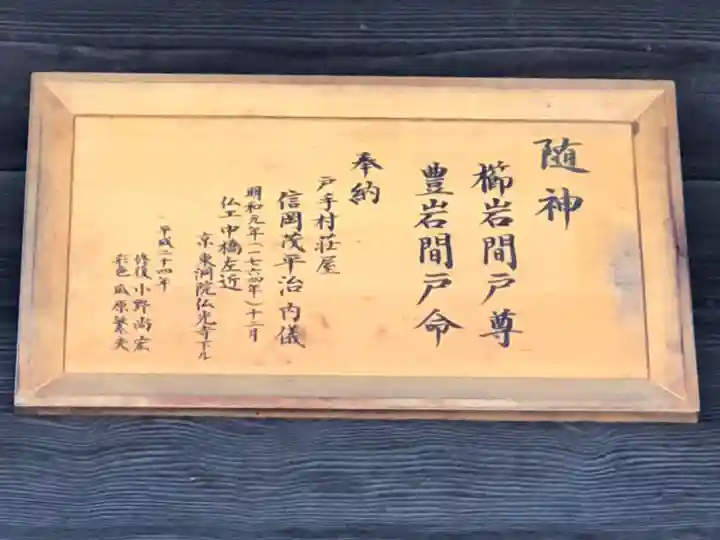 随神
櫛岩間戸尊
豊岩間戸命
奉納
戸手村荘屋
信岡茂平治内儀
明和元年(一七六四年)十二月
仏工中橋左近
京東洞院仏光寺下ル
平成二十四年
修復小野尚宏
彩色瓜原繁夫